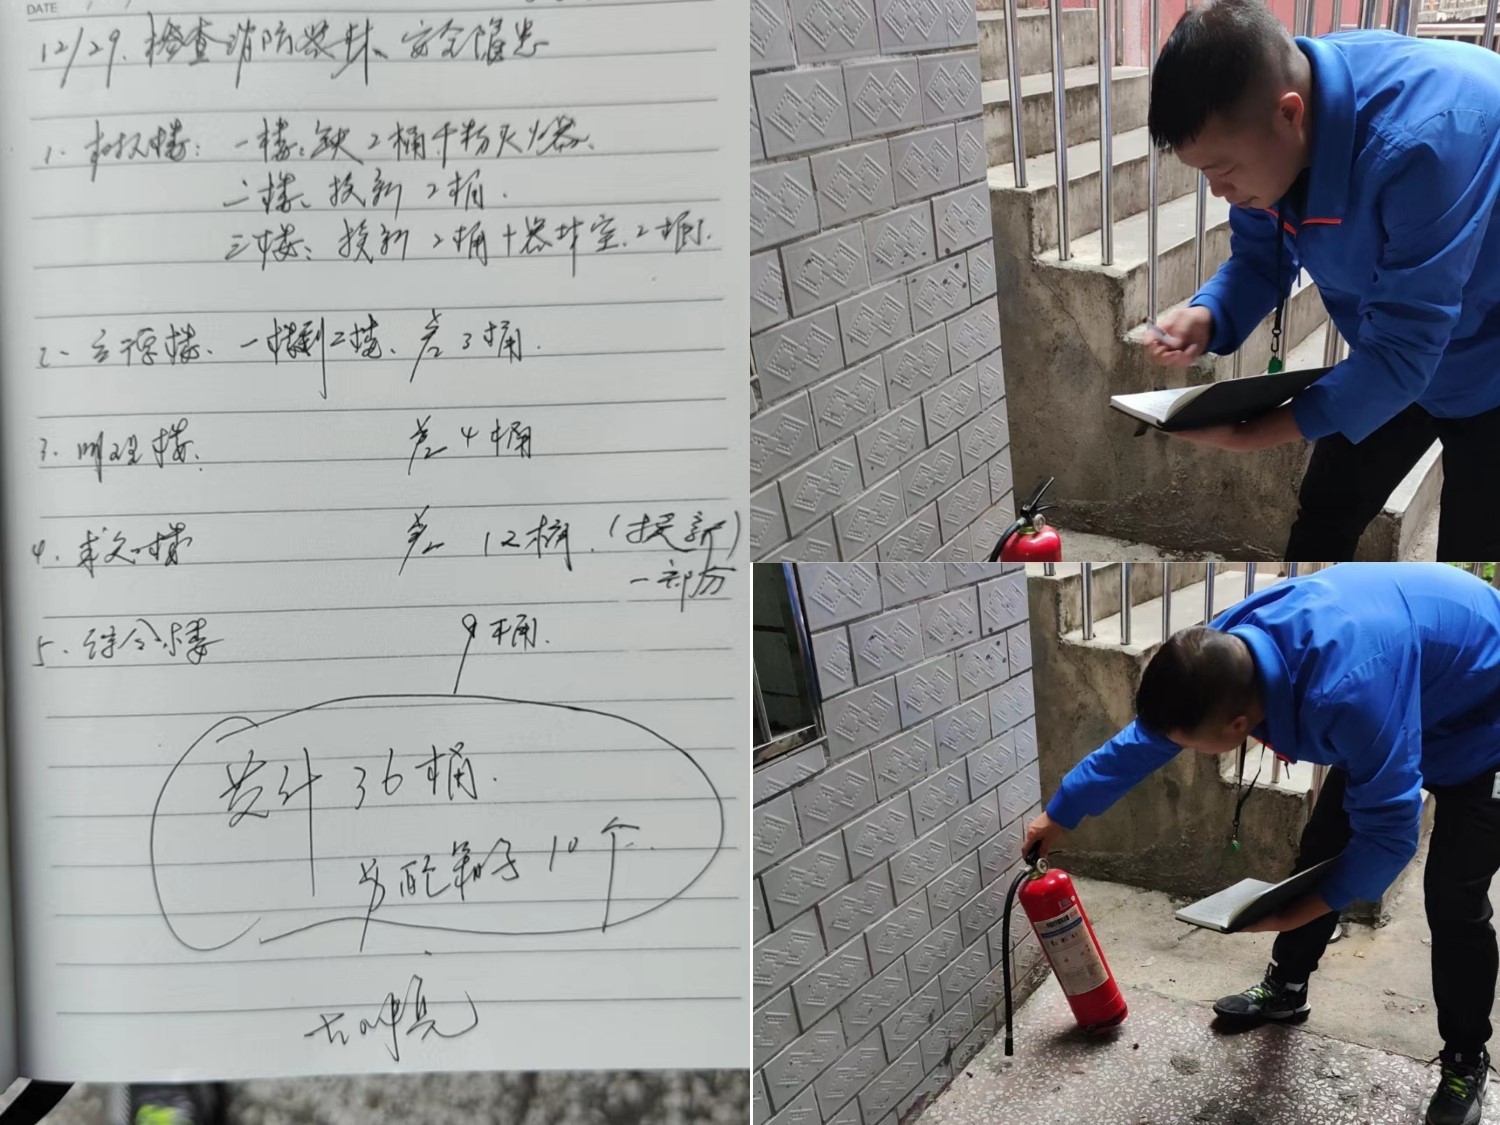 DATE
12/29. 检查消防器材、安全隐患
1. 楼: 一楼: 缺2桶干粉灭火器.
二楼: 换新 2桶.
三楼: 换新 2桶+器材室. 2桶.
2. 楼、一楼到二楼、差3桶.
3. 明理楼. 差4桶
4. 求文楼 差12桶. (换新)
一部分
5. 综合楼 9桶.
共计 36桶.
另配箱子 10个.